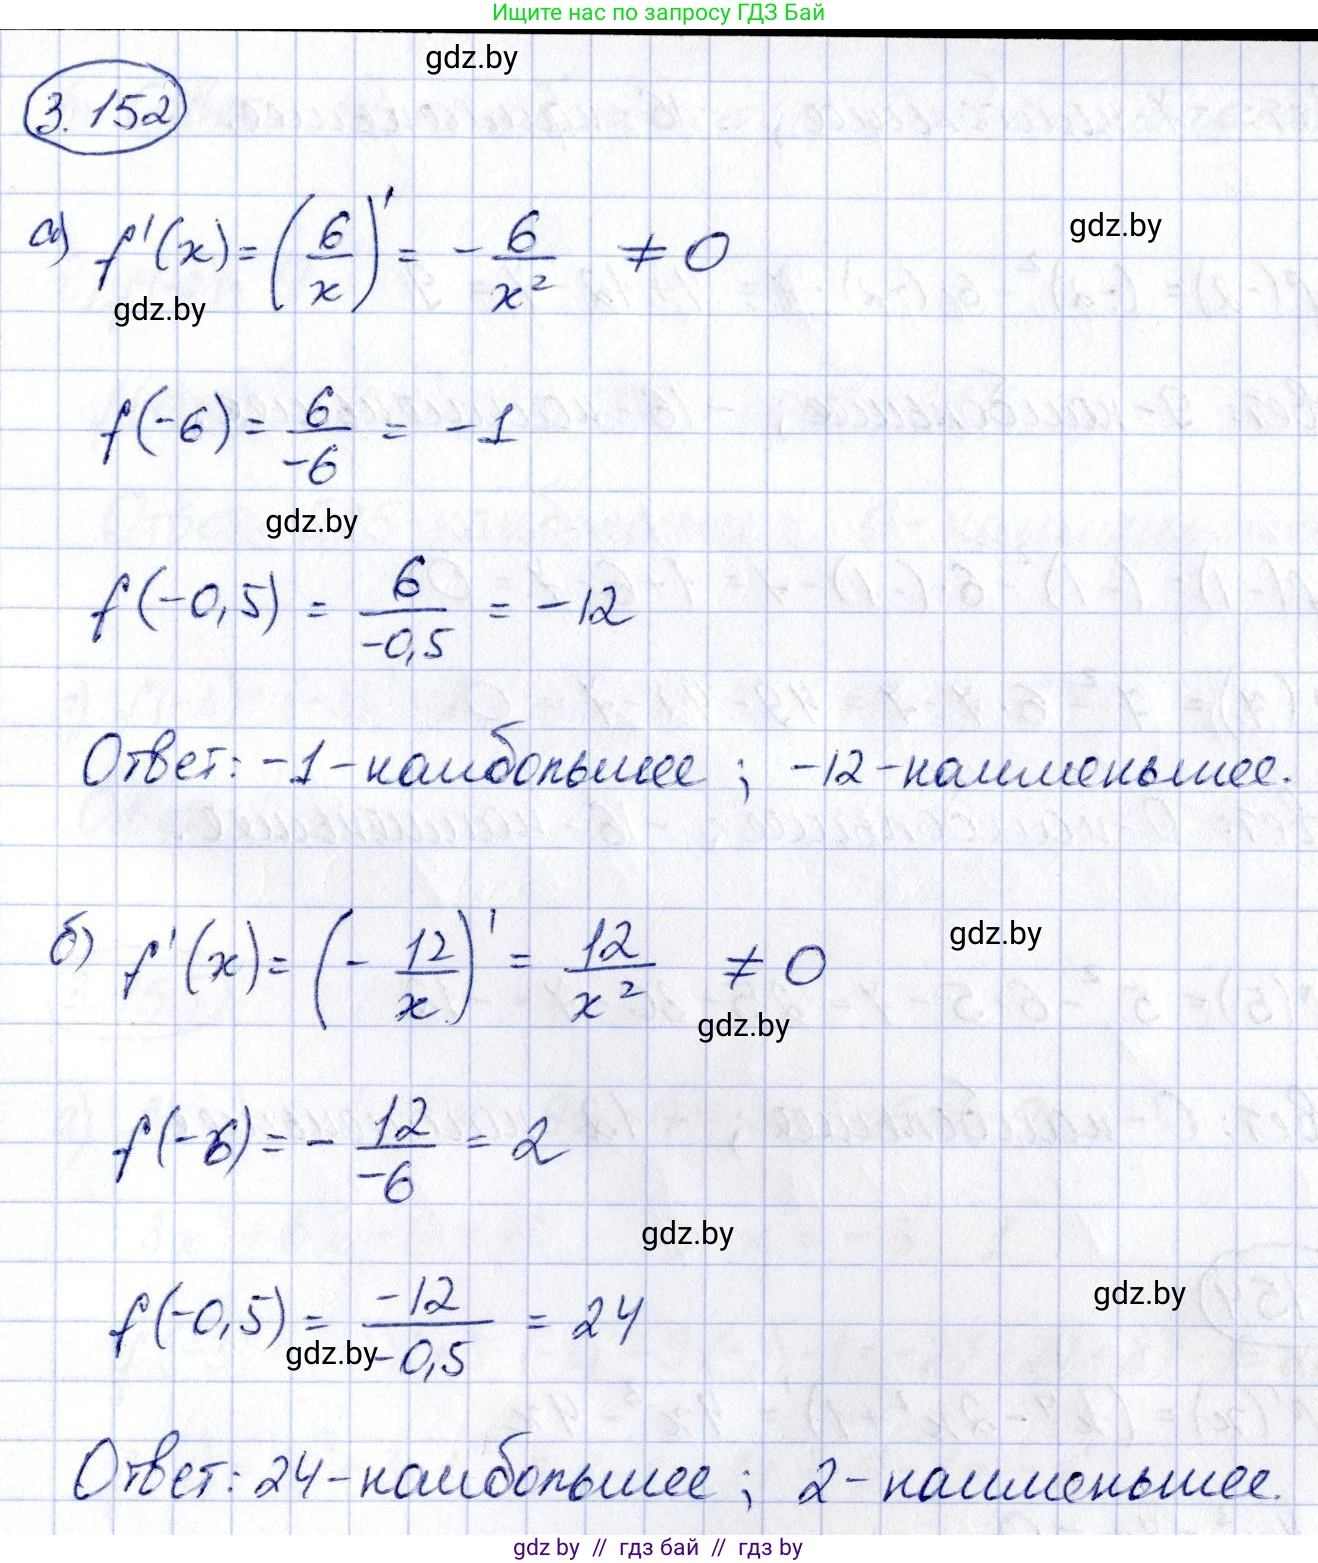 Ищите нас по запросу ГДЗ Бай
gdz.by
3.152
gdz.by
а) f'(x) = (6/x)' = - 6/x² ≠ 0
gdz.by
f(-6) = 6/-6 = -1
gdz.by
f(-0,5) = 6/-0,5 = -12
Ответ: -1 - наибольшее ; -12 - наименьшее.
gdz.by
б) f'(x) = (- 12/x)' = 12/x² ≠ 0
gdz.by
f(-6) = - 12/-6 = 2
gdz.by
gdz.by
f(-0,5) = -12/-0,5 = 24
gdz.by
Ответ: 24 - наибольшее ; 2 - наименьшее.
gdz.by // гдз бай // гдз by